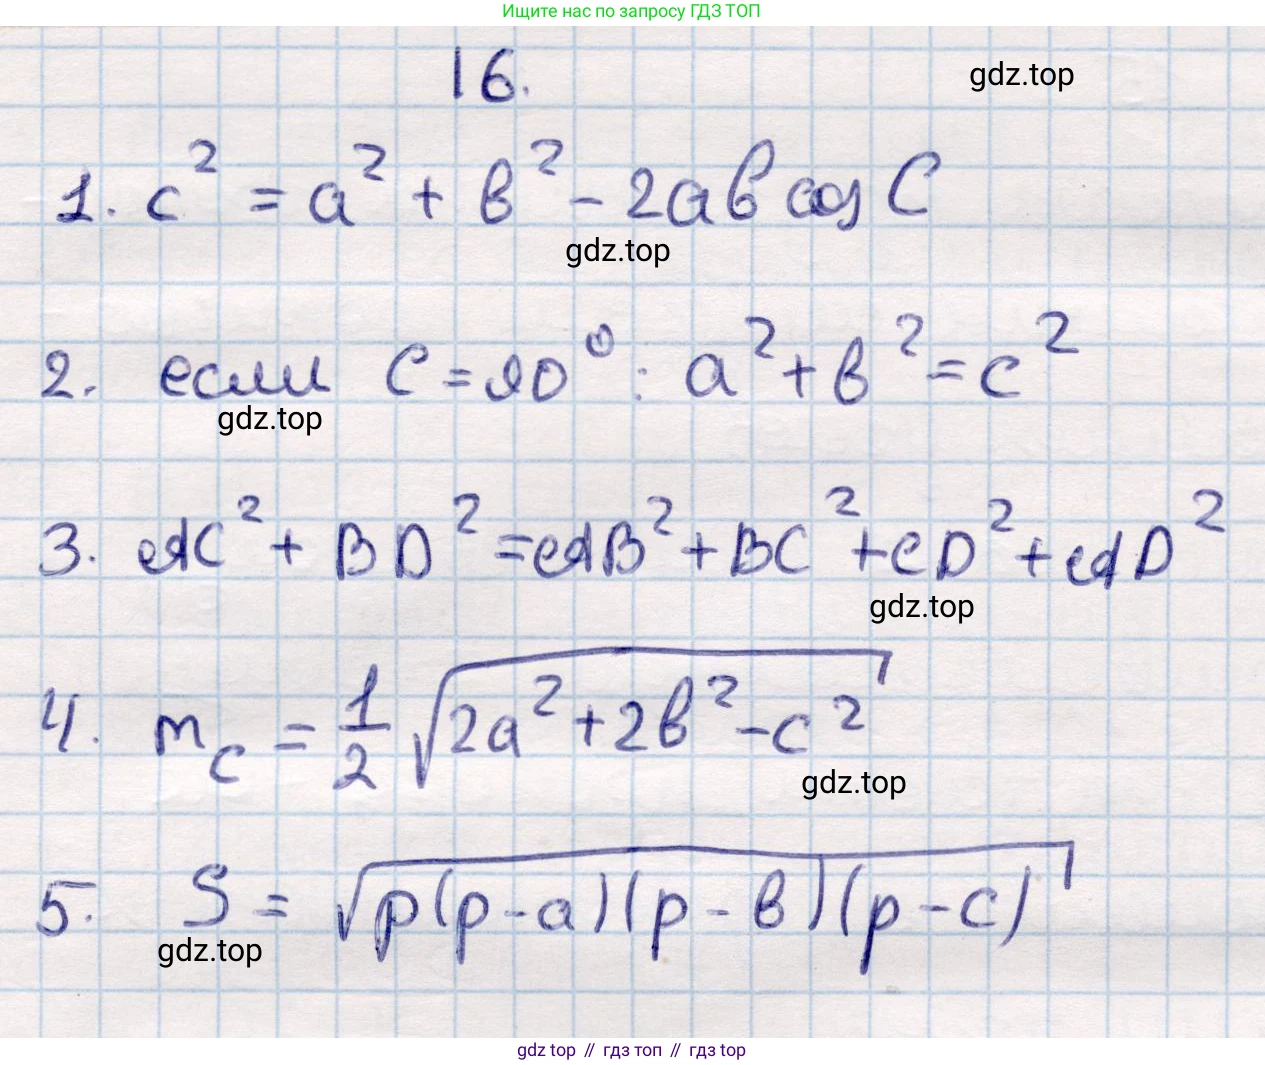 Ищите нас по запросу ГДЗ ТОП
16.
gdz.top
1. c² = a² + b² - 2ab cos C
gdz.top
2. если C = 90° : a² + b² = c²
gdz.top
3. AC² + BD² = AB² + BC² + CD² + AD²
gdz.top
4. m_c = 1/2 √(2a² + 2b² - c²)
gdz.top
5. S = √(p(p - a)(p - b)(p - c))
gdz.top
gdz top // гдз топ // gdz top